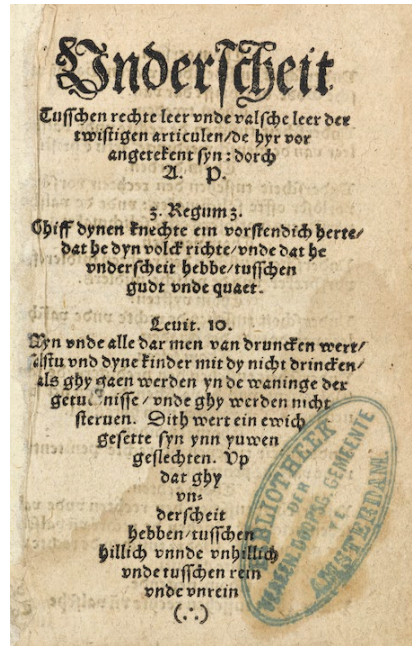 Underscheit
Tusschen rechte leer vnde valsche leer der
twistigen articulen/de hyr vor
angetekent syn: dorch
A. P.
3. Regum 3.
Ghiff dynen knechte ein vorstendich herte/
dat he dyn volck richte/vnde dat he
vnderscheit hebbe/tusschen
gudt vnde quaet.
Leuit. 10.
Wyn vnde alle dar men van druncken wert/
salstu vnd dyne kinder mit dy nicht drincken/
als ghy gaen werden yn de waninge der
getuchnisse/vnde ghy werden nicht
steruen. Dith wert ein ewich
gesette syn ynn yuwen
geslechten. Vp
dat ghy
vn=
derscheit
hebben/tusschen
hillich vnnde vnhillich
vnde tusschen rein
vnde vnrein
(∴)
BIBLIOTHEEK
DER
VEREEN. DOOPSG. GEMEENTE
TE
AMSTERDAM